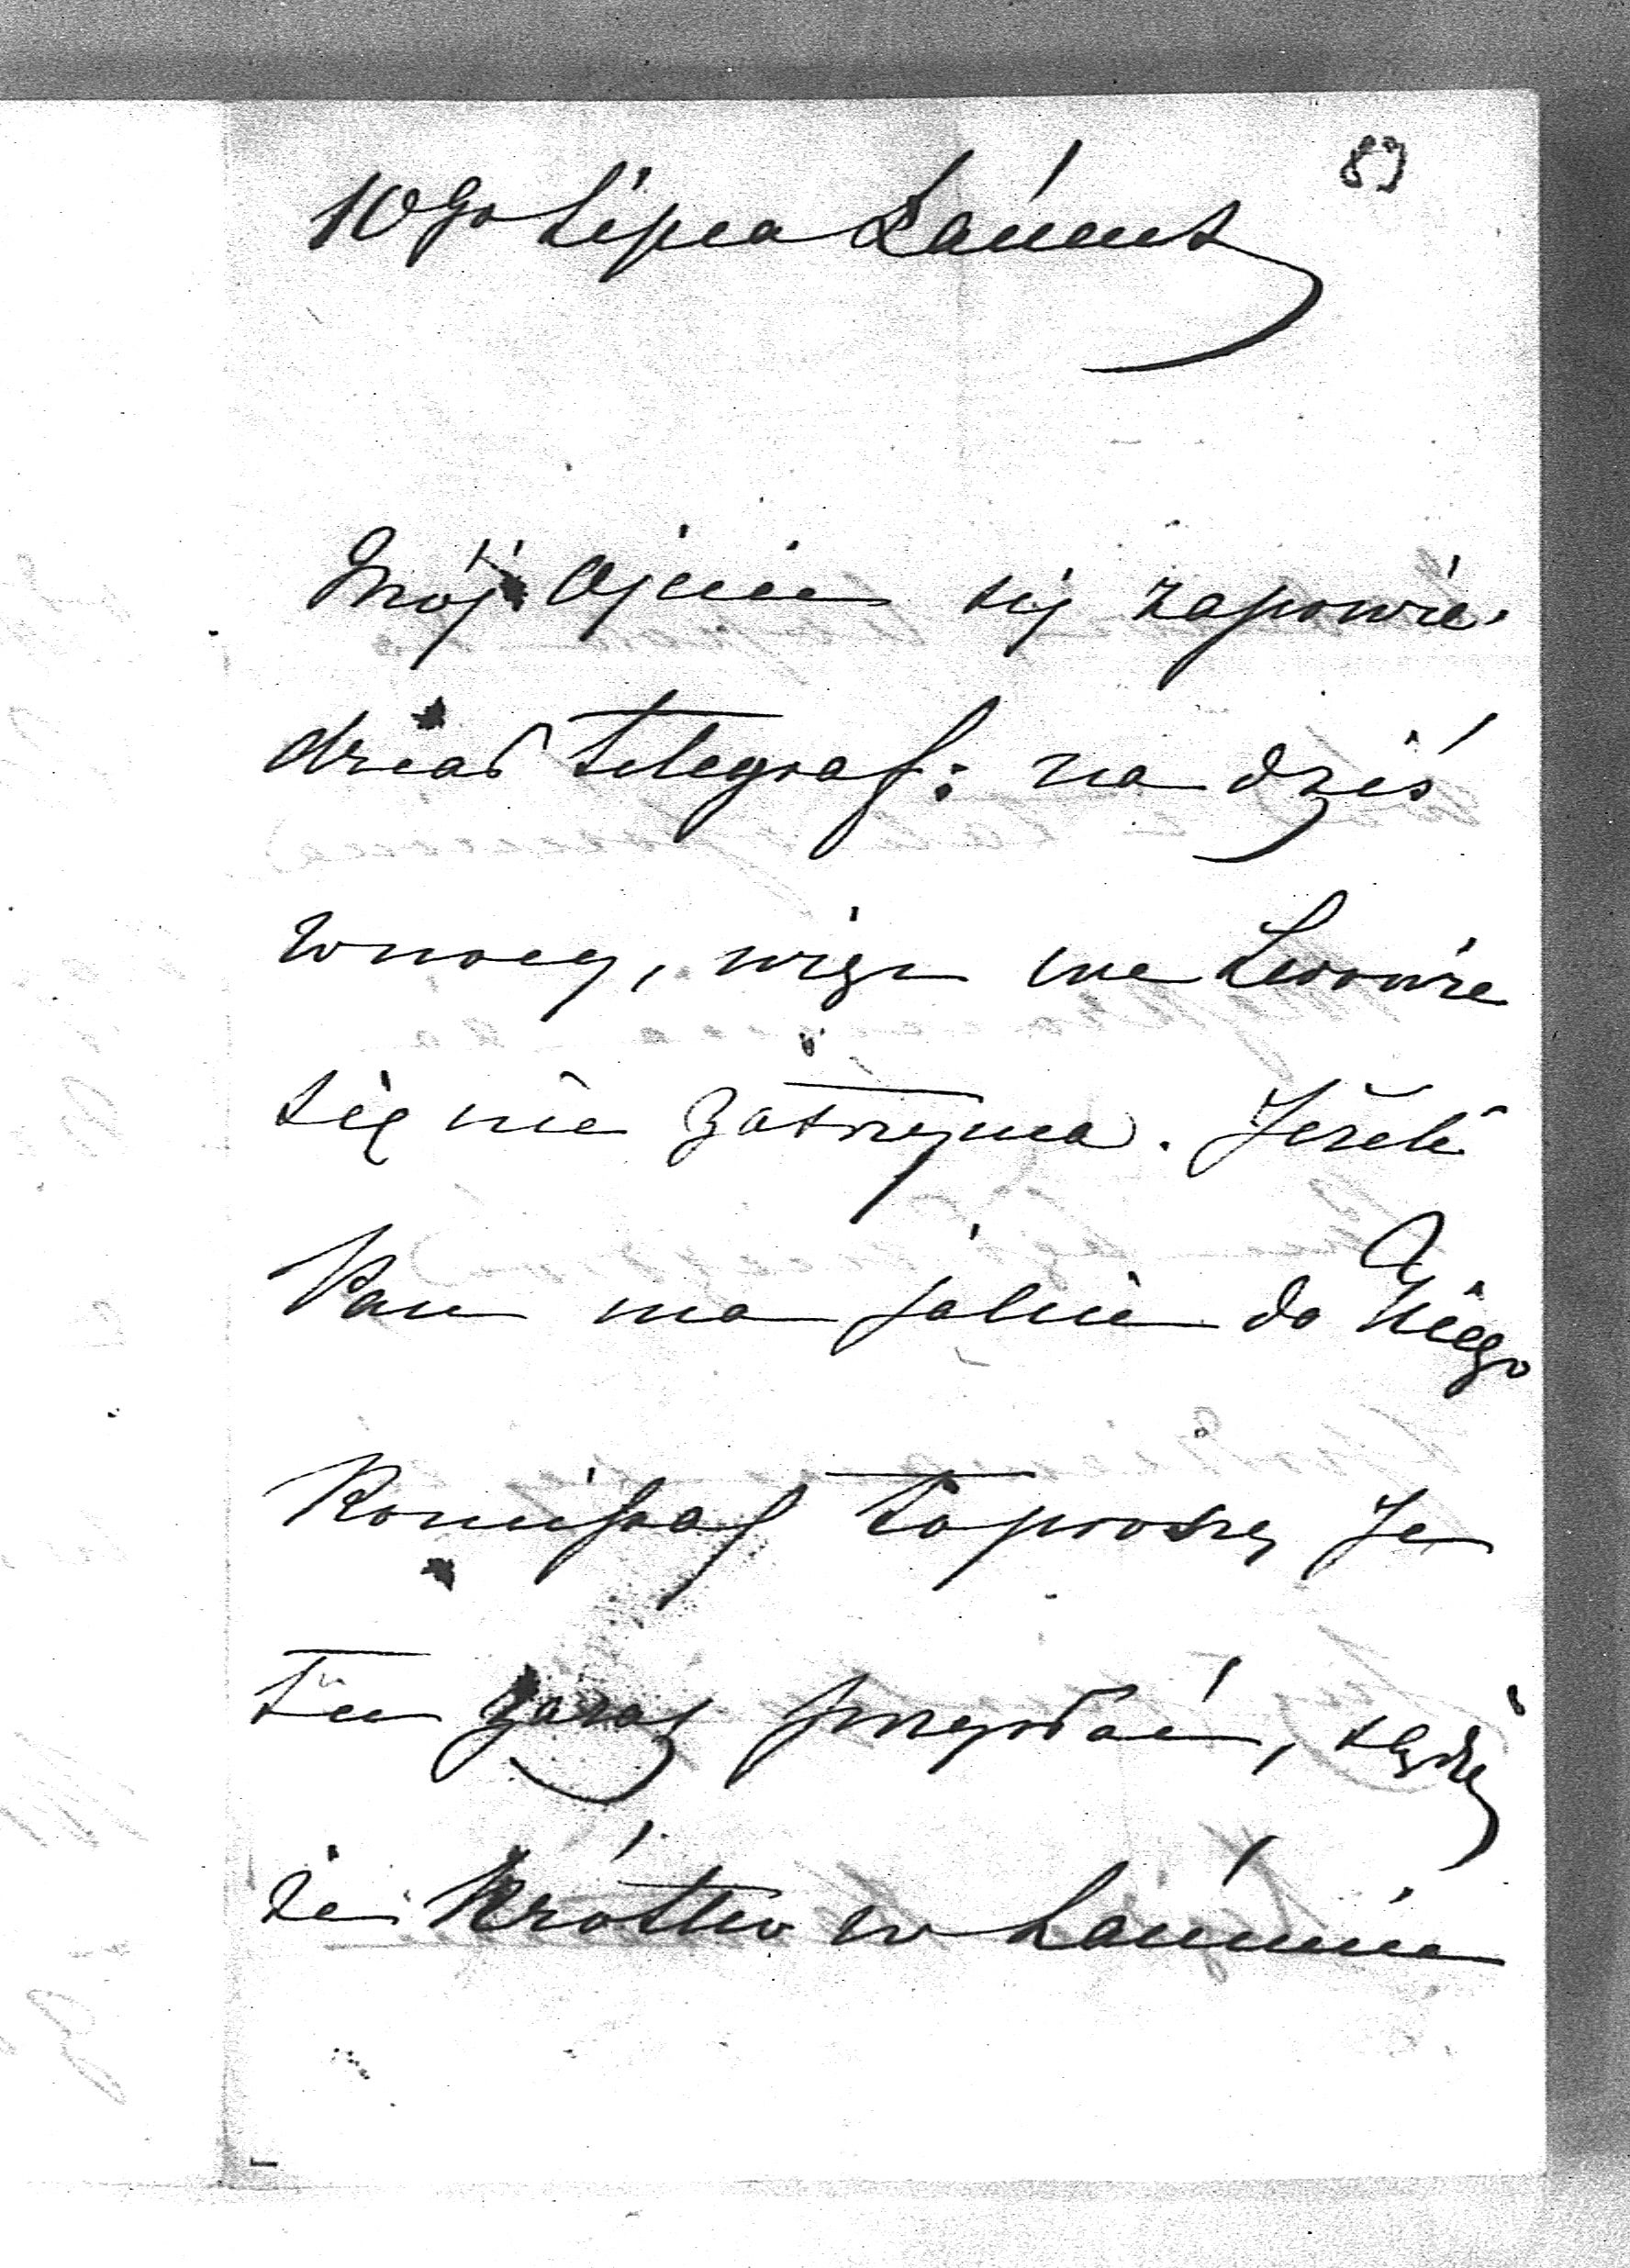 89
10go Lipca Łańcut
Mój Ojciec się zapowie-
dział telegraf: na dziś
wnocy, więc we Lwowie
się nie zatrzyma. Jeżeli
Pan ma jakie do Niego
to proszę Je
tu zaraz przysłać, sądzę
że Krótko w Łańcucie